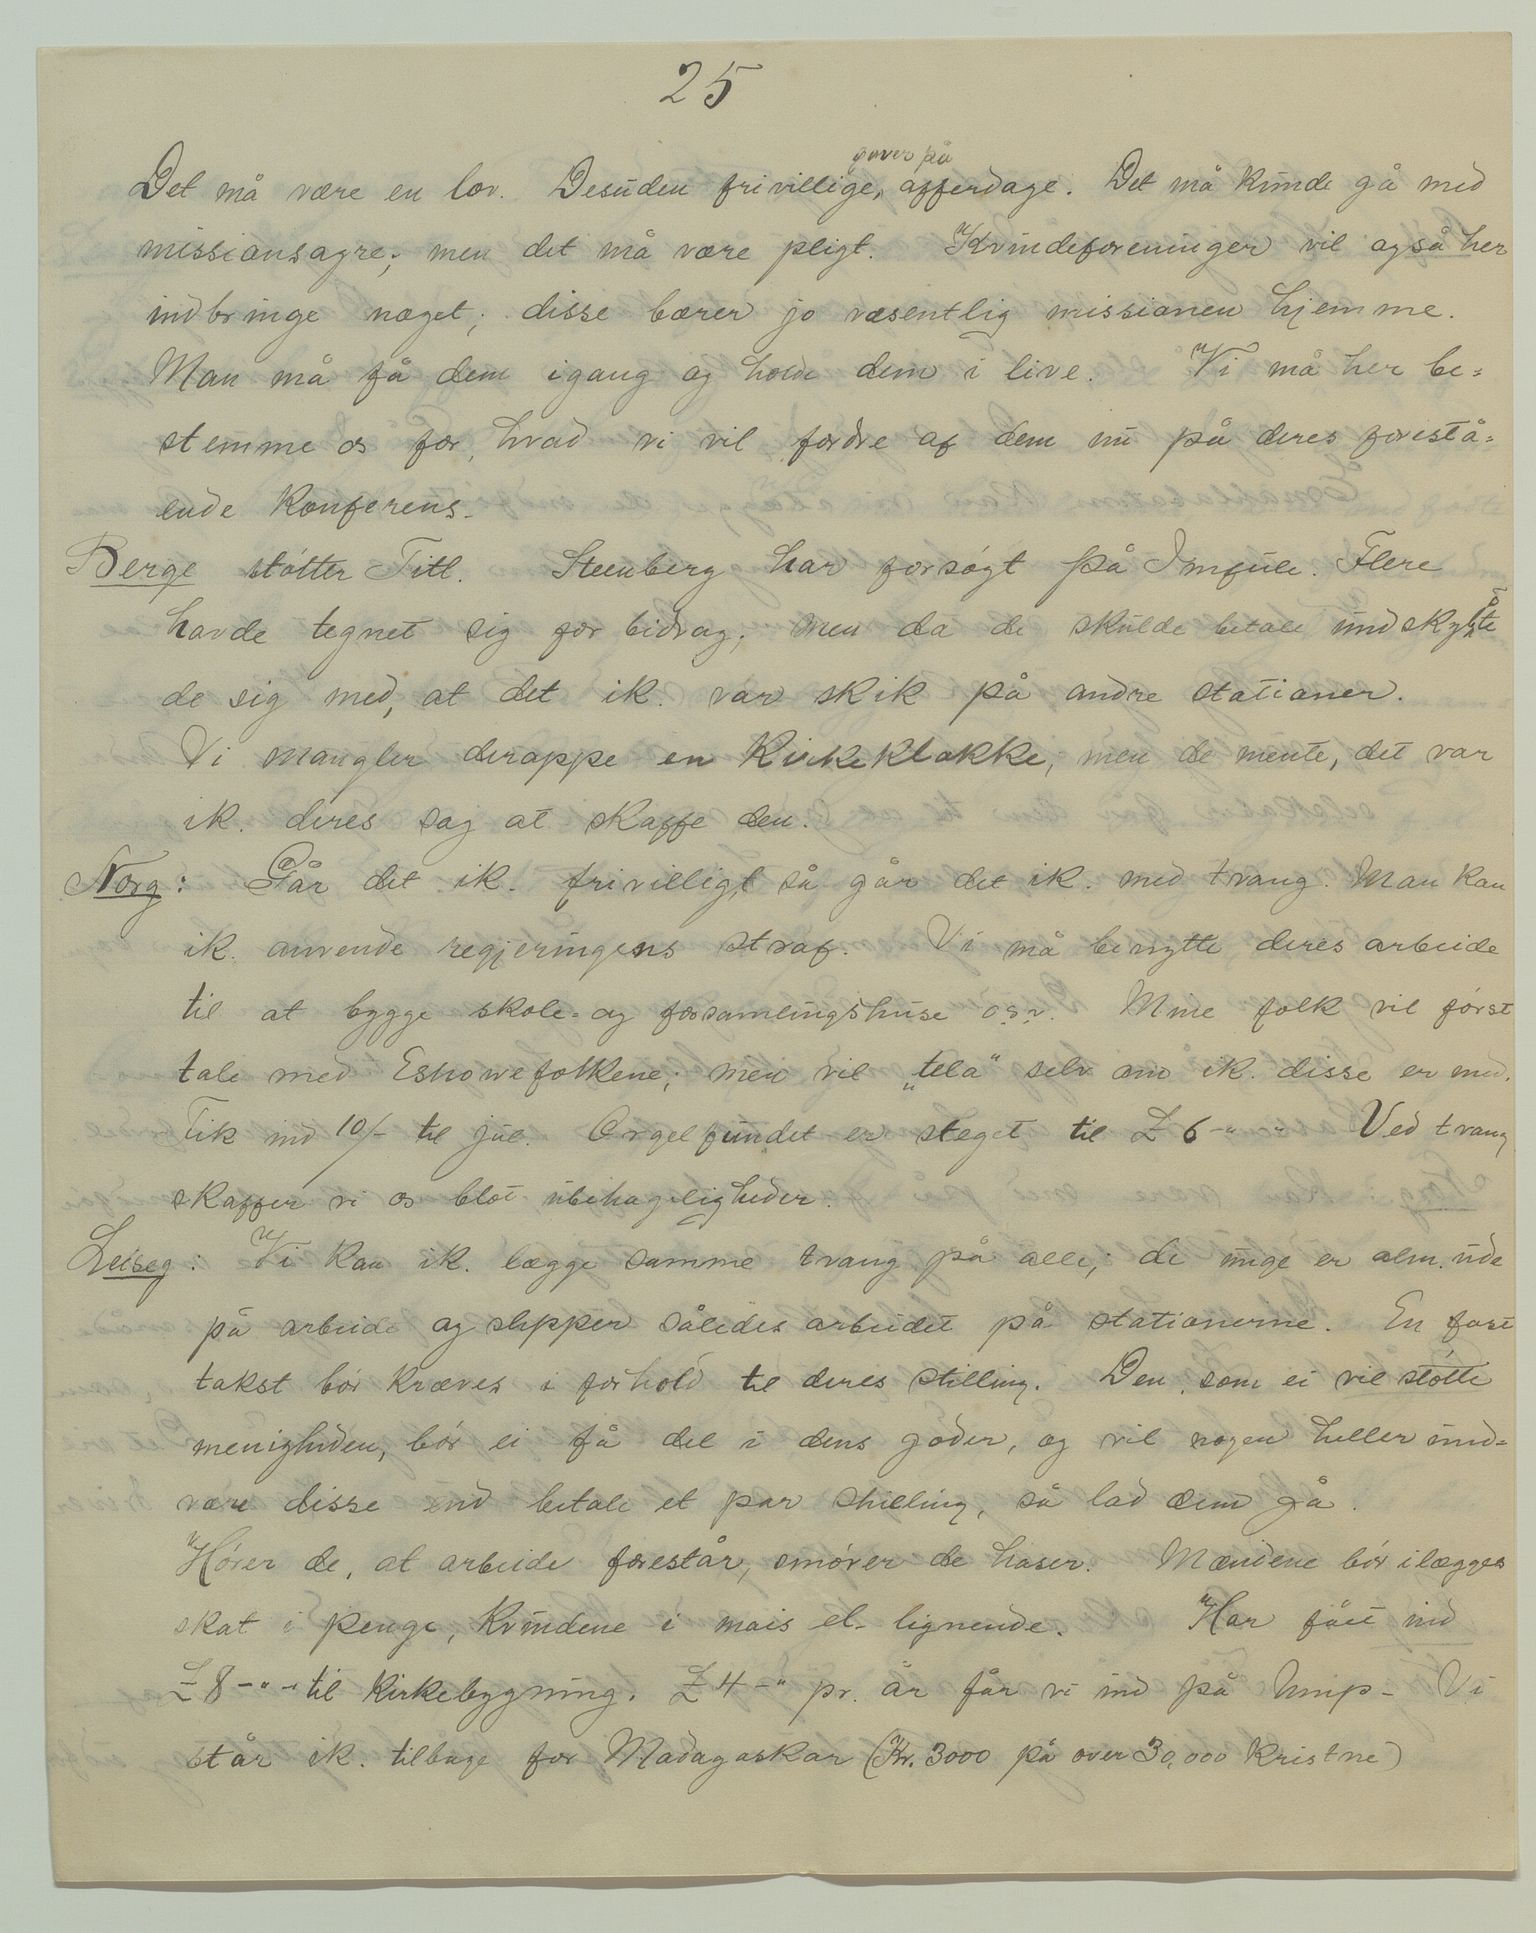 25
gaver på
Det må være en lov. Desuden frivillige, offerdage. Det må kunde gå med
missionsagre; men det må være pligt. Kvindeforeninger vil også her
indbringe noget; disse bærer jo væsentlig missionen hjemme.
Man må få dem igang og holde dem i live. Vi må her be=
stemme os for, hvad vi vil fordre af dem nu på deres forestå=
ende Konferens.
Berge støtter Titl. Steenberg har forsøgt på Imfule. Flere
havde tegnet sig for bidrag; men da de skulde betale undskyldte
de sig med, at det ik. var skik på andre stationer.
Vi mangler deroppe en Kirkeklokke; men de mente, det var
ik. deres sag at skaffe den.
Norg: Går det ik. frivilligt, så går det ik. med tvang. Man kan
ik. anvende regjeringens straf. Vi må benytte deres arbeide
til at bygge skole= og forsamlingshuse osv. Mine folk vil først
tale med Eshowefolkene; men vil „tela" selv om ik. disse er med.
Fik ind 10/- til jul. Orgelfundet er steget til £ 6-"-" Ved tvang
skaffer vi os blot ubehageligheder.
Leiseg: Vi kan ik. lægge samme tvang på alle; de unge er alm. ude
på arbeide og slipper således arbeidet på stationerne. En fast
takst bør kræves i forhold til deres stilling. Den, som ei vil støtte
menigheden, bør ei få del i dens goder, og vil nogen heller und=
være disse end betale et par shilling, så lad dem gå.
Hører de, at arbeide forestår, smører de haser. Mændene bør ilægges
skat i penge, Kvindene i mais el. lignende. Har fået ind
£ 8-"-" til Kirkebygning. £ 4-" pr. år får vi ind på Ump- Vi
står ik. tilbage for Madagaskar (Kr. 3000 på over 30,000 Kristne)